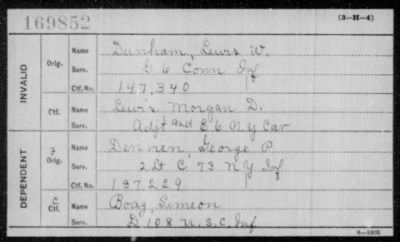 169852
(3-H-4)
INVALID
Orig.
Name Dunham, Lewis W.
Serv. G 6 Conn Inf
Ctf. No. 147,340
Ctf.
Name Lewis Morgan D.
Serv. Adjt and E 6 N Y Cav
DEPENDENT
Orig.
Name Dennen, George P.
Serv. 2 Lt C 73 N Y Inf
Ctf. No. 137.229
Ctf.
Name Boaz, Simeon
Serv. D 108 U.S.C. Inf